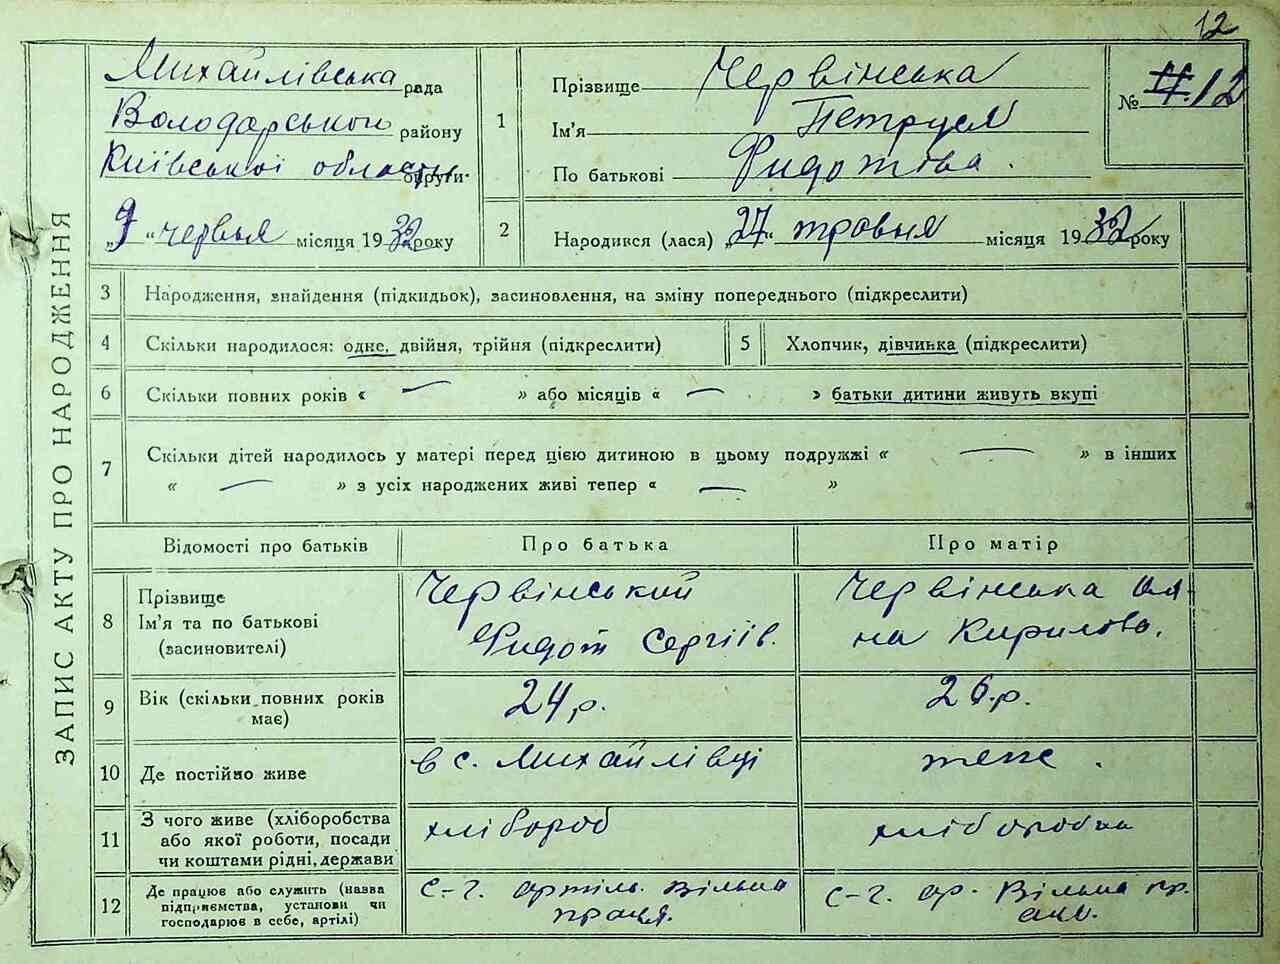 12
ЗАПИС АКТУ ПРО НАРОДЖЕННЯ
Михайлівська рада
Володарського району
Київської області округи
„9“ червня місяця 1932 року
1
Прізвище Червінська
Ім'я Петруся
По батькові Фидотівa.
№ 12
2
Народився (лася) „27“ травня місяця 1932 року
3 Народження, знайдення (підкидьок), засиновлення, на зміну попереднього (підкреслити)
4 Скільки народилося: одне, двійня, трійня (підкреслити)
5 Хлопчик, дівчинка (підкреслити)
6 Скільки повних років « — » або місяців « — » батьки дитини живуть вкупі
7 Скільки дітей народилось у матері перед цією дитиною в цьому подружжі « — » в інших
« — » з усіх народжених живі тепер « — »
Відомості про батьків
Про батька
Про матір
8 Прізвище
Ім'я та по батькові
(засиновителі)
Червінський
Фидот Сергіїв.
Червінська
на Кирилова.
9 Вік (скільки повних років
має)
24 р.
26 р.
10 Де постійно живе
в с. Михайлівці
теж.
11 З чого живе (хліборобства
або якої роботи, посади
чи коштами рідні, держави
хлібороб
хліборобка
12 Де працює або служить (назва
підприємства, установи чи
господарює в себе, артілі)
с-г. артіль Вільна
праця.
с-г. ар. Вільна пр.